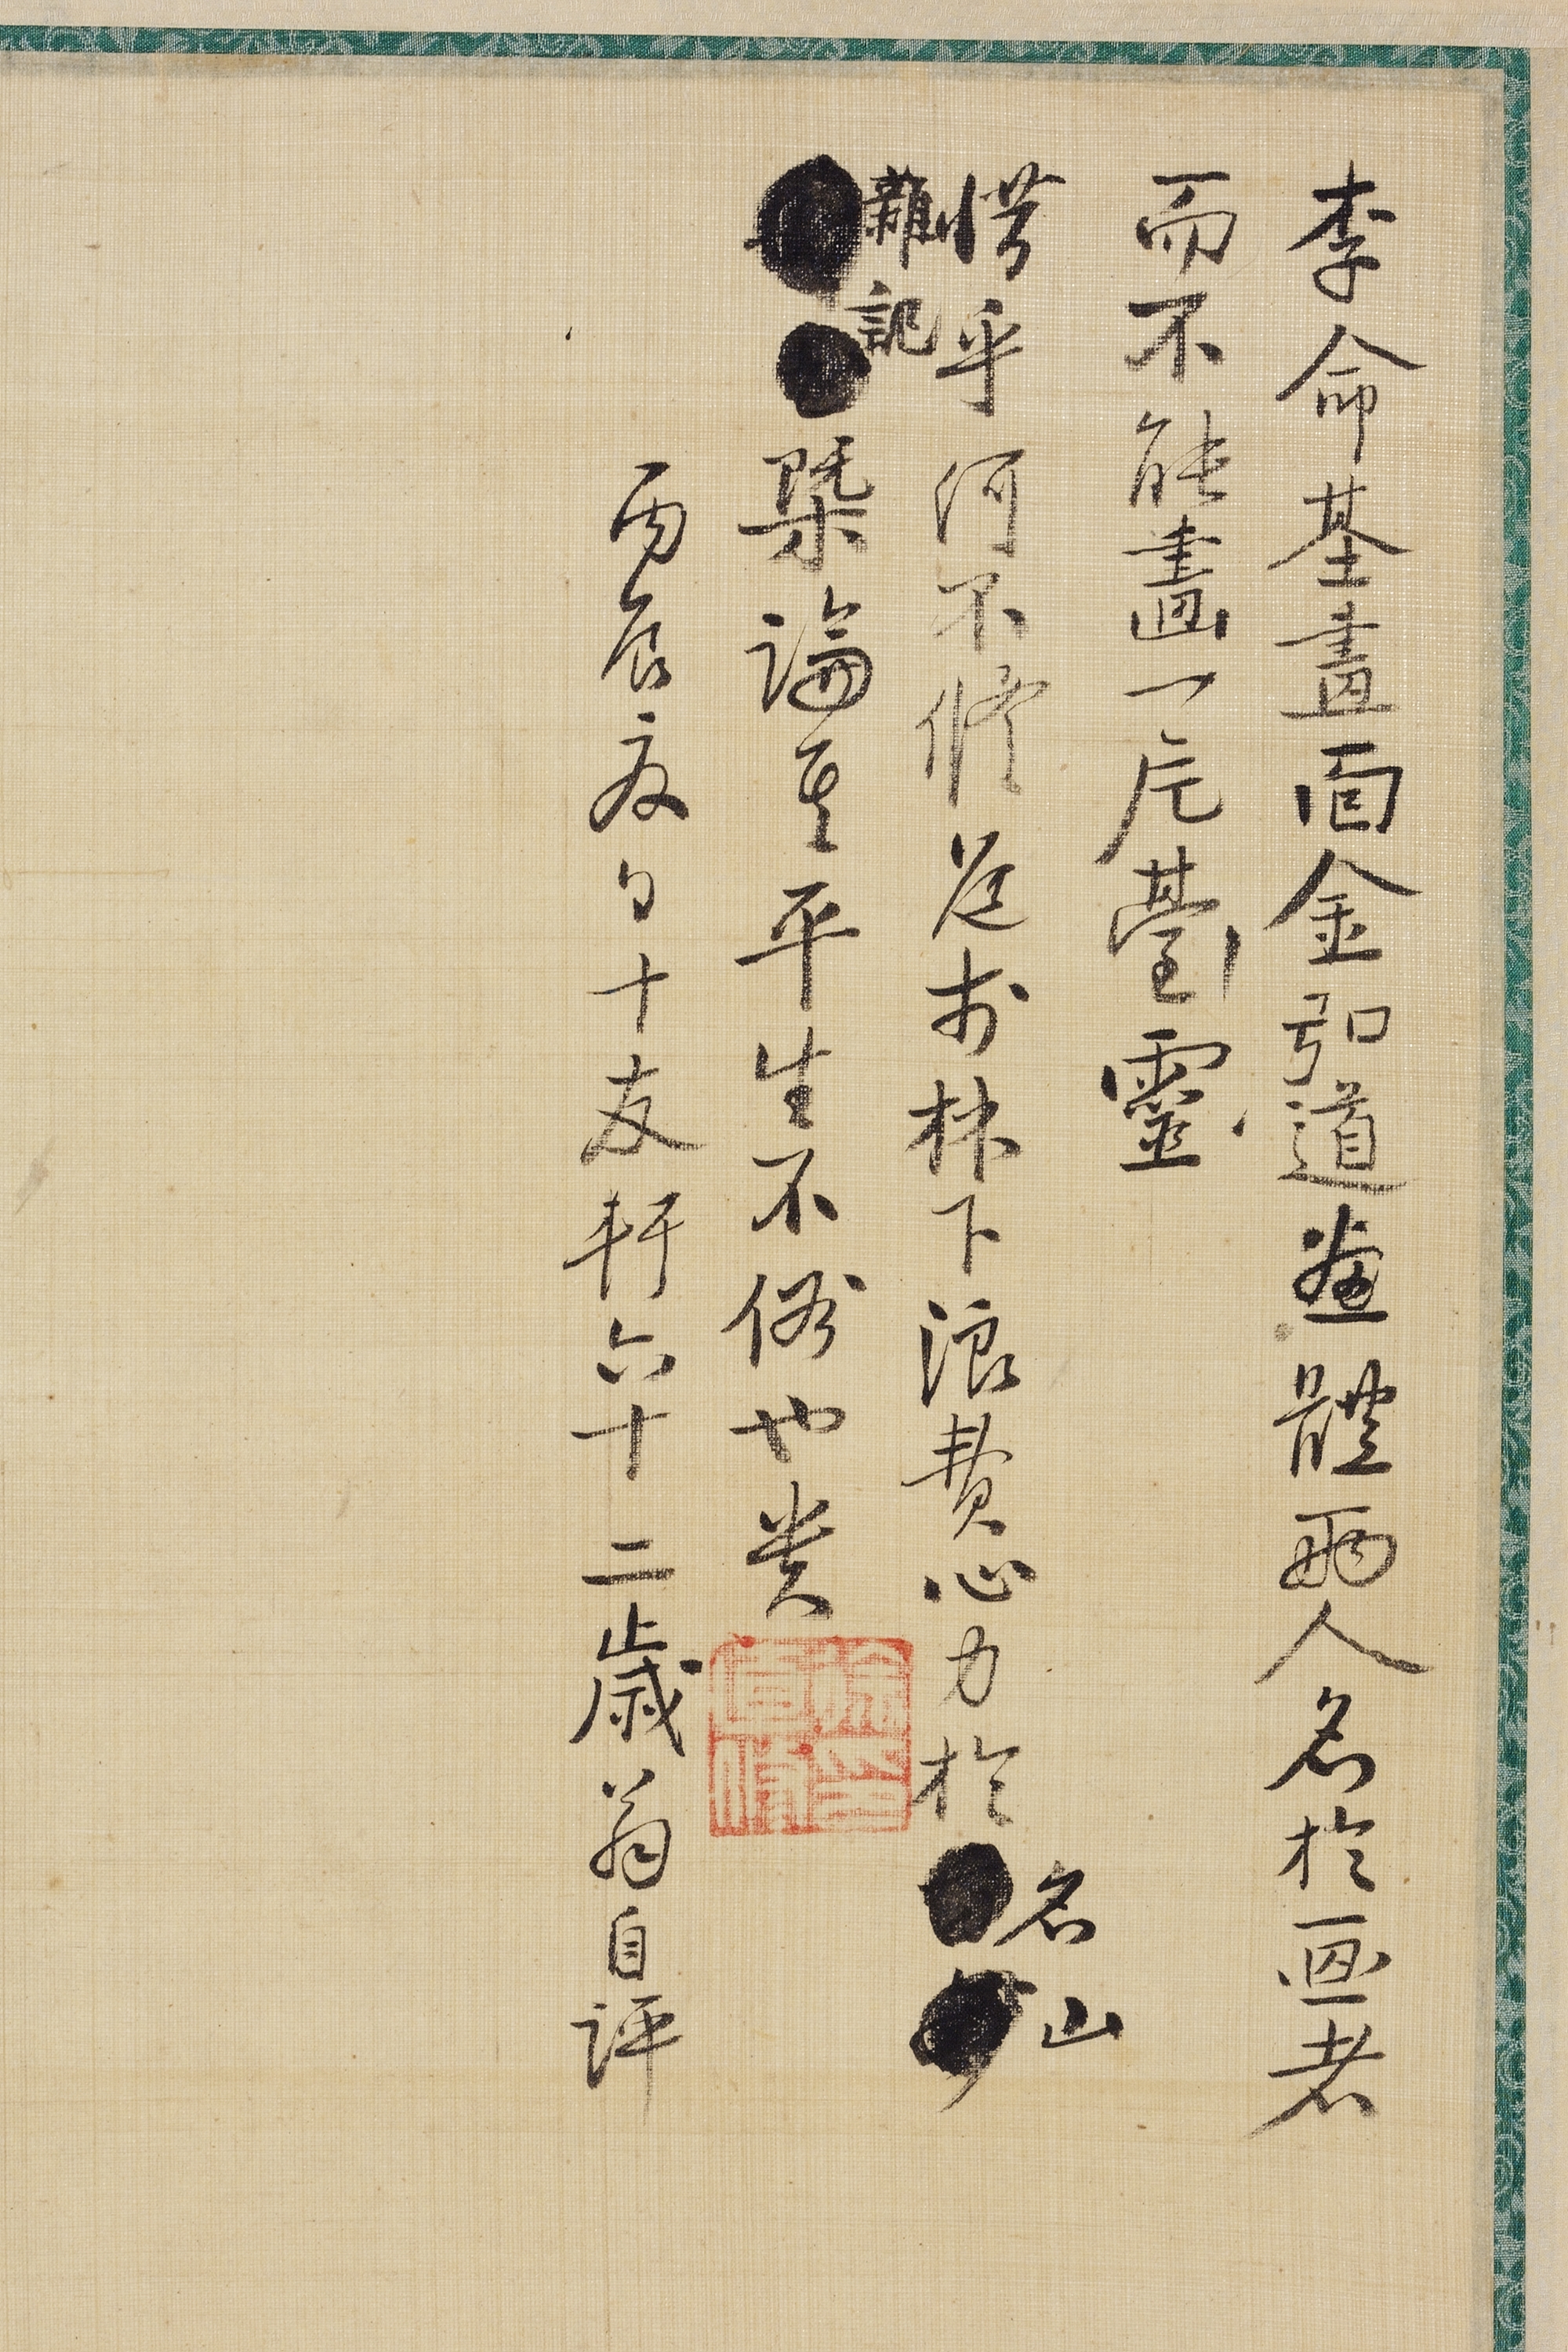 李命基畫面金弘道畫體兩人名於画者
而不能畫一片臺靈
惜乎何不修道於林下浪費心力於名山
雜記
槩論其平生不俗也貴
丙辰夏日十友軒六十二歲翁自評